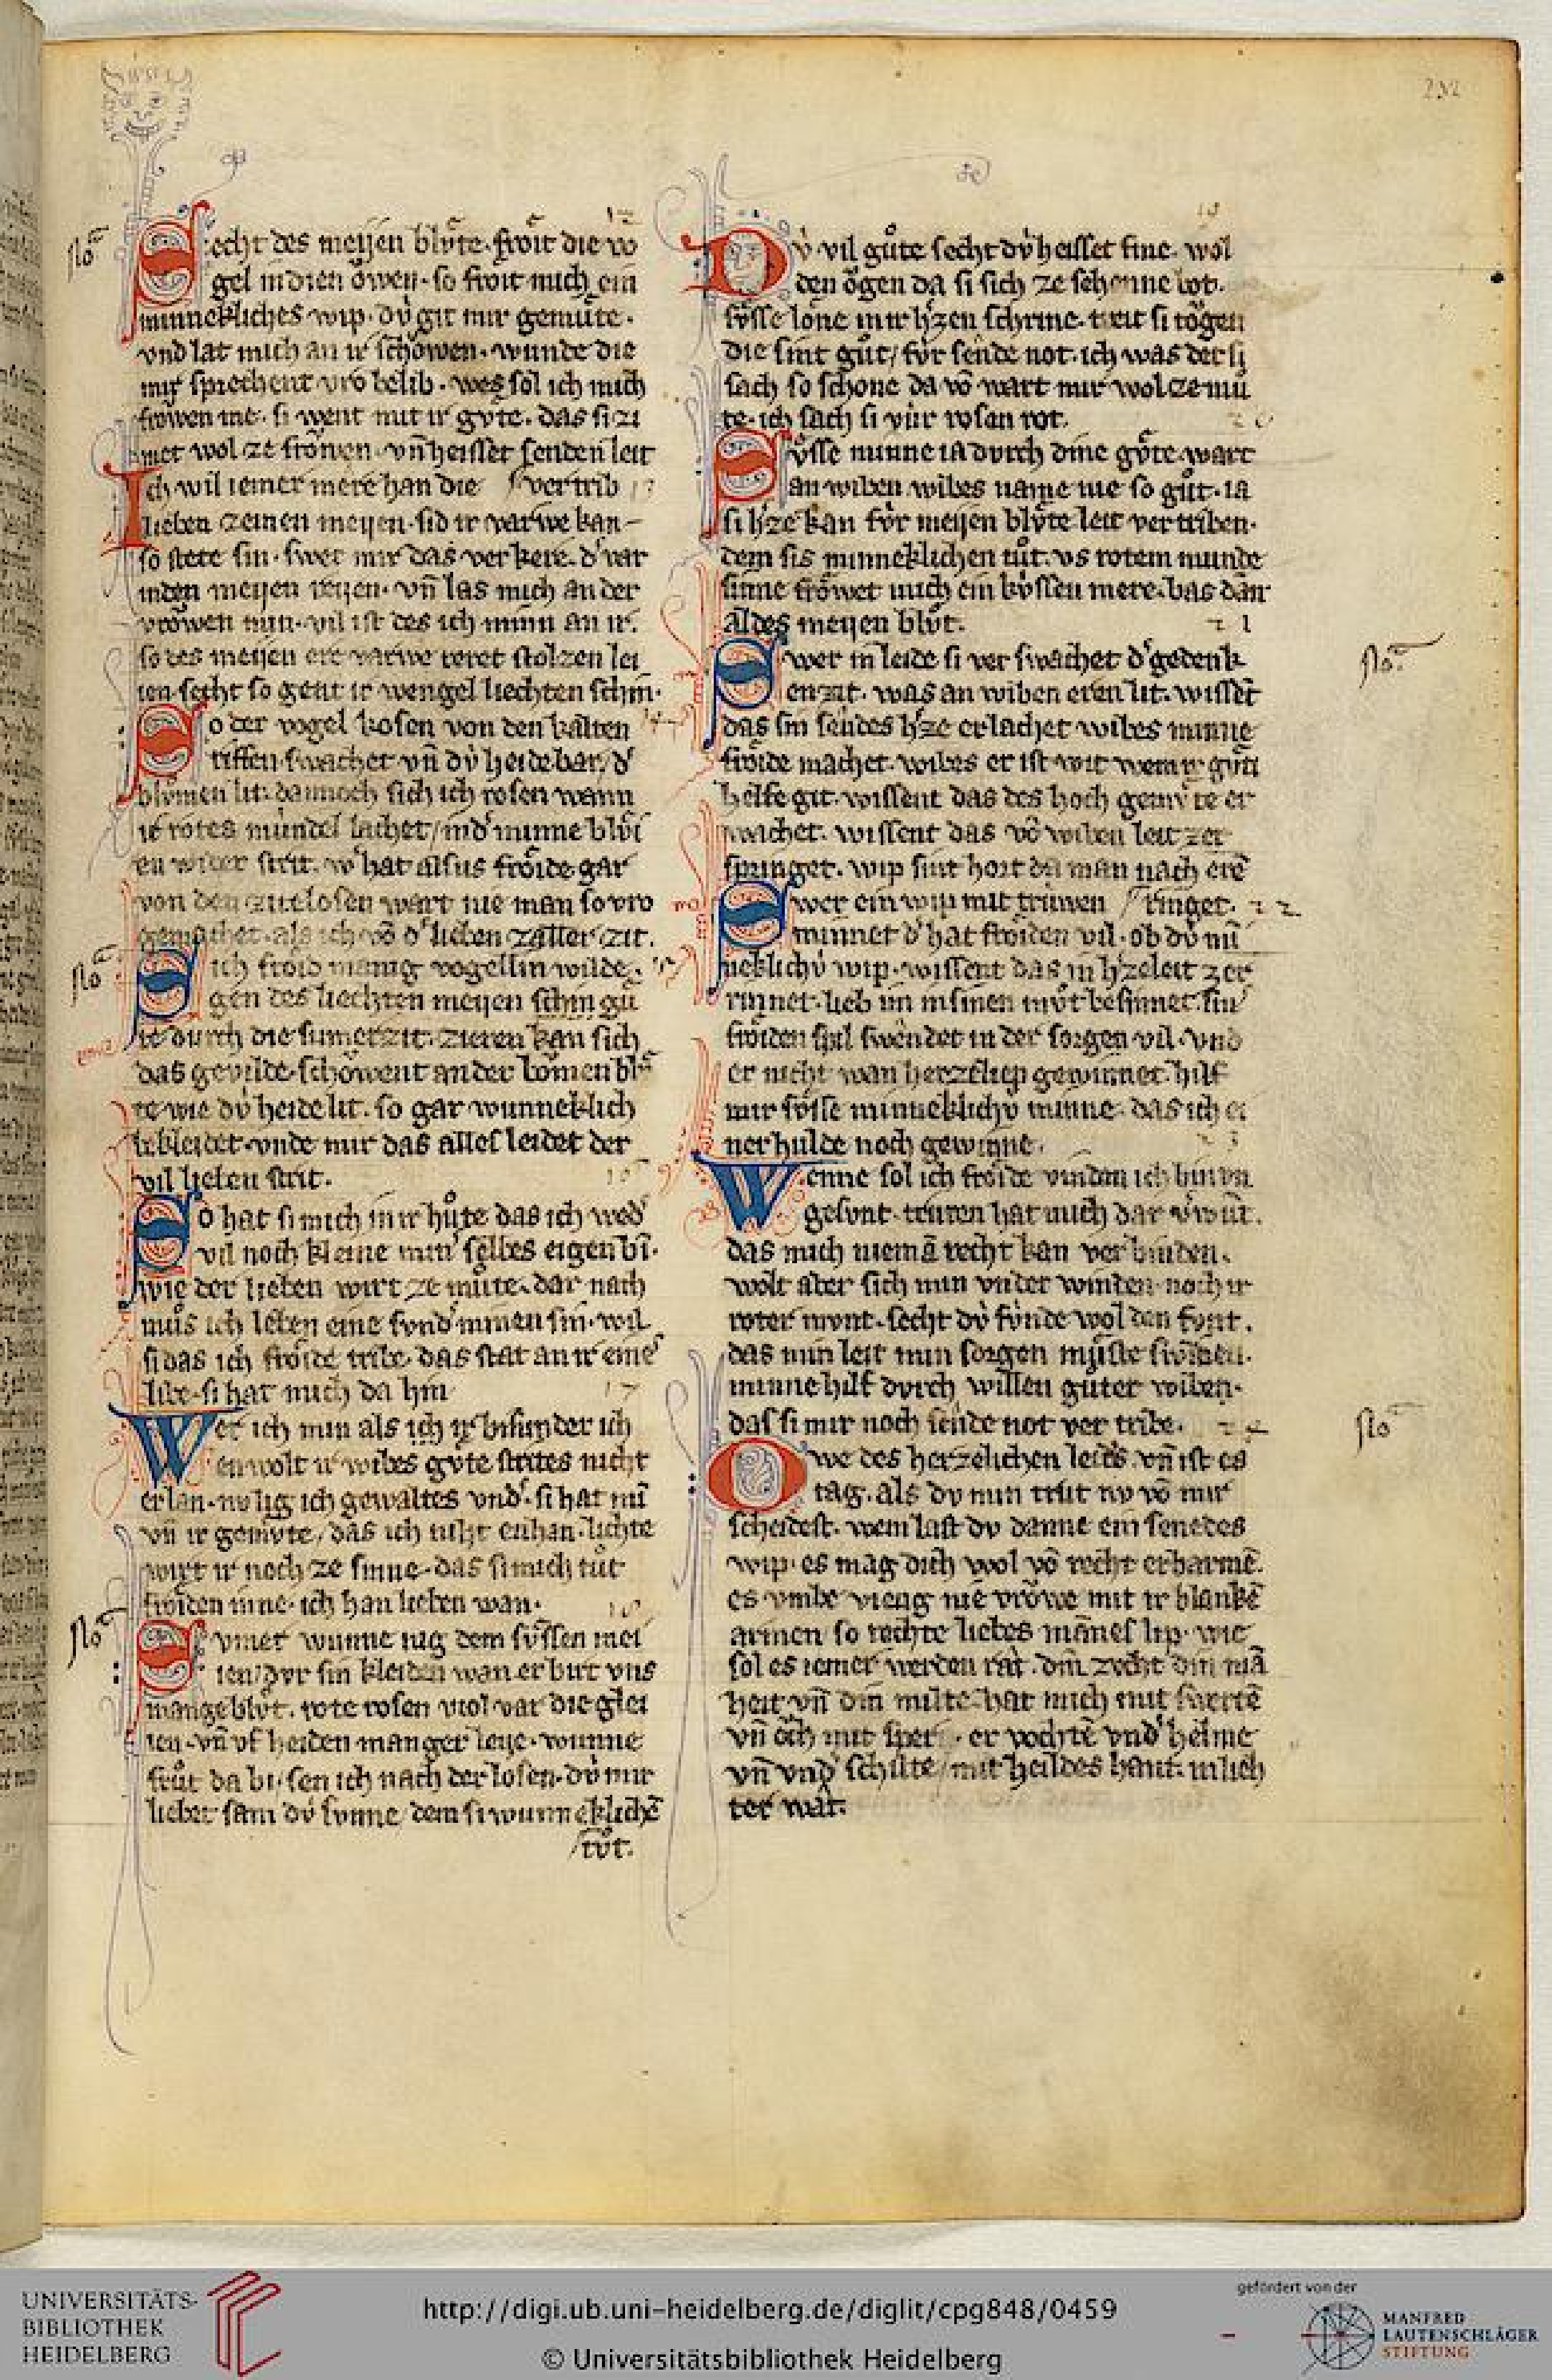 232
Secht des meijen blvͤte. froͤit die vo
gel in dien oͮwen. so froit mich ein
minnekliches wip. dv̍ git mir gemuͤte.
vnd lat mich an ir schoͮwen. wunde die
mir sprechent vro belib. wes sol ich mich
froͤwen me. si went mit ir gvte. das si zi
met wol ze froͤwen. vn̄ heisset senden leit
vertrib
Ich wil iemer mere han die
lieben zeinen meyen. sid ir varwe kan
so stete sin. swer mir das verkere. d' var
in den meyen reyen. vn̄ las mich an der
vroͮwen min. vil ist des ich minn an ir.
so des meijen ere varwe reret stolzen lei
ien. secht so gent ir wengel liechten schin.
So der vogel kosen von den kalten
riffen swachet vn̄ dv̍ heide bar. d'
blv̊men lit. dannoch sich ich rosen wann
ir rotes mündel lachet / in d' minne blv̍i
en wider strit. w' hat alsus froͤide gar
von den zitelosen wart nie man so vro
gemachet. als ich vō d' lieben zaller zit.
Sich froͤid manig vogellin wilde.
gen des liechten meyen schin gu
te durch die sumerzit. zieren kan sich
das gevilde. schoͮwent an der boͮmen blv
te wie dv̍ heide lit. so gar wunneklich
bekleidet. vnde mir das alles leidet der
vil lieben strit.
So hat si mich in ir huͦte das ich wed'
vil noch kleine min' selbes eigen bī.
wie der lieben wirt ze muͦte. dar nach
muͦs ich leben eine svnd' minen sin. wil
si das ich froͤide tribe. das stat an ir eine
libe. si hat mich da hin
Wer ich min als ich ir bisunder ich
en wolt ir wibes gvͤte strites nicht
erlan. nv lig ich gewaltes vnd'. si hat mī
vn̄ ir gemvͤte / das ich niht enhan. lichte
wirt ir noch ze sinne. das si mich tuͦt
froͤiden inne. ich han lieben wan.
Svmer wunne iug dem sv̍ssen mei
ien / dvr sin kleiden wan er birt vns
mange blvͦt. rote rosen viol var die glei
ien. vn̄ vf heiden manger leye. wunne
fruͦt da bi. sen ich nach der losen. dv̍ mir
liebet sam dv̍ svnne / dem si wunneklichē
tvͦt.
Dv̍ vil guͦte secht dv̍ heisset fine. wol
den oͮgen da si sich ze schonne bot.
sv̍sse lone mir h'zen schrine. treit si toͮgen
die sint guͦt / fv̍r sende not. ich was der si
sach so schone da vō wart mir wol ze mü
te. ich sach si vür rosan rot.
Sv̍sse minne ia dvrch dine gvͤte wart
an wiben wibes name nie so guͦt. ia
si h'ze kan fv̍r meijen blvͤte leit vertriben.
dem sis minneklichen tuͦt. vs rotem munde
sinne froͮwet mich ein kv̍ssen mere. bas dan
aldes meyen blvͦt.
Swer in leide si verswachet d' gedenk
en zit. was an wiben eren lit. wisset
das sin sendes h'ze erlachet wibes minne
froͤide machet. wibes er ist wit wem ir guͤti
helfe git. wissent das des hoch gemvͤte er
wachet. wissent das vō wiben leit zer
springet. wip sint hort da man nach erē
ringet.
Swer ein wip mit trüwen
minnet d' hat froͤiden vil. ob dv̍ mī
neklichv̍ wip. wissent das in h'zeleit zer
rinnet. lieb im in sinen mvͦt besinnet. sin
froͤiden spil swendet in der sorgen vil. vnd
er nicht wan herzeliep gewinnet. hilf
mir sv̍sse minneklichv̍ minne. das ich ei
ner hulde noch gewinne.
Wenne sol ich froͤide vinden ich bin vn
gesvnt. truren hat mich dar v'wūt.
das mich niemā recht kan verbinden.
wolt aber sich min vnder winden. noch ir
roter mvnt. secht dv̍ fv̍nde wol den fvnt.
das min leit min sorgen müste swinden.
minne hilf dvrch willen guter wiben.
das si mir noch sende not vertribe.
Owe des herzelichen leides. vn̄ ist es
tag. als dv min trut nv vō mir
scheidest. wem last dv danne ein senedes
wip. es mag dich wol vō recht erbarmē.
es vmbe vieng nie vroͮwe mit ir blankē
armen so rechte liebes mānes lip. wie
sol es iemer werden rat. din zvcht din mā
heit vn̄ din milte. hat mich mit swertē
vn̄ oͮch mit sper. er vochte vnd' helme
vn̄ vnd' schilte / mit heildes hant. in lieh
ter wat.
UNIVERSITÄTS-
BIBLIOTHEK
HEIDELBERG
http://digi.ub.uni-heidelberg.de/diglit/cpg848/0459
© Universitätsbibliothek Heidelberg
gefördert von der
MANFRED
LAUTENSCHLÄGER
STIFTUNG